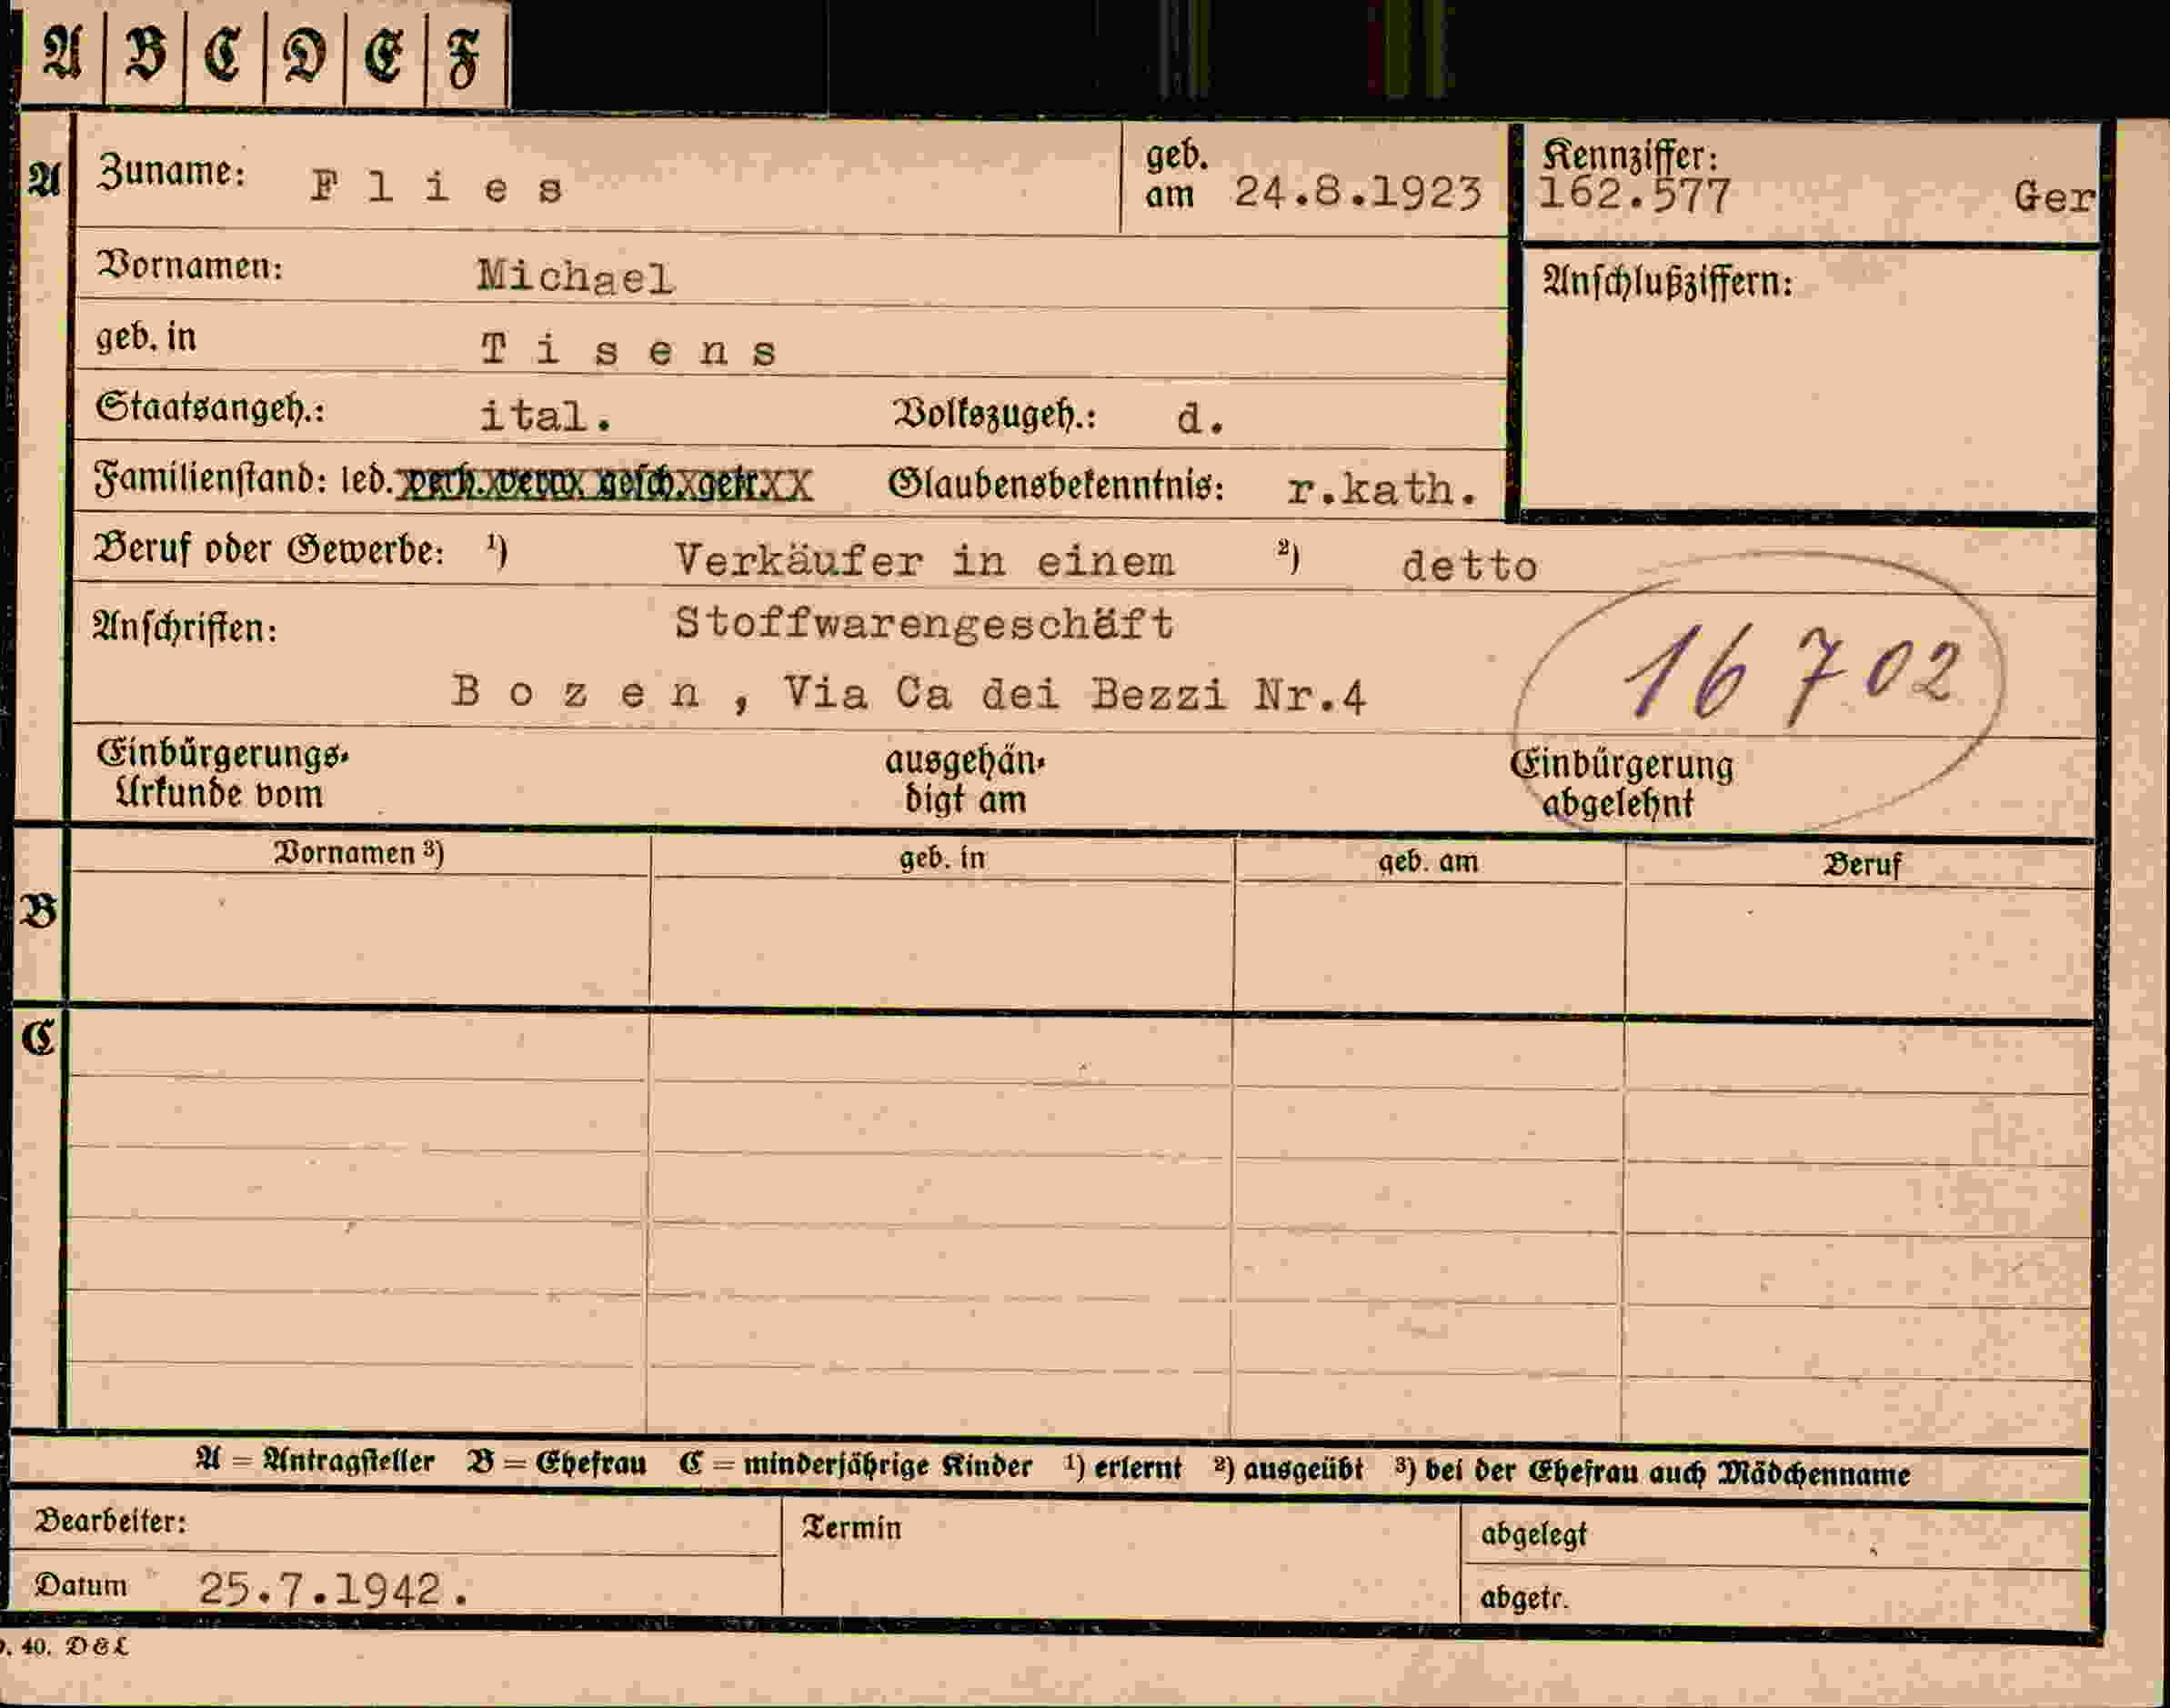 A B C D E F
A Zuname: F l i e s geb. am 24.8.1923 Kennziffer: 162.577 Ger
Vornamen: Michael Anschlußziffern:
geb. in T i s e n s
Staatsangeh.: ital. Volkszugeh.: d.
Familienstand: led. verh. verw. gesch. getr. Glaubensbekenntnis: r.kath.
Beruf oder Gewerbe: ¹) Verkäufer in einem ²) detto
Anschriften: Stoffwarengeschäft
B o z e n , Via Ca dei Bezzi Nr.4 16702
Einbürgerungs- ausgehän- Einbürgerung
Urkunde vom digt am abgelehnt
Vornamen ³) geb. in geb. am Beruf
B
C
A = Antragsteller B = Ehefrau C = minderjährige Kinder ¹) erlernt ²) ausgeübt ³) bei der Ehefrau auch Mädchenname
Bearbeiter: Termin abgelegt
Datum 25.7.1942. abgetr.
. 40. D&L